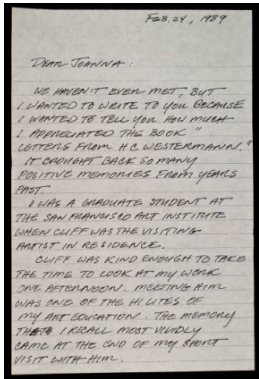 FEB. 24, 1989
DEAR JOANNA:
WE HAVEN'T EVER MET, BUT
I WANTED TO WRITE TO YOU BECAUSE
I WANTED TO TELL YOU HOW MUCH
I APPRECIATED THE BOOK "
LETTERS FROM H.C. WESTERMANN."
IT BROUGHT BACK SO MANY
POSITIVE MEMORIES FROM YEARS
PAST.
I WAS A GRADUATE STUDENT AT
THE SAN FRANCISCO ART INSTITUTE
WHEN CLIFF WAS THE VISITING
ARTIST IN RESIDENCE.
CLIFF WAS KIND ENOUGH TO TAKE
THE TIME TO LOOK AT MY WORK
ONE AFTERNOON. MEETING HIM
WAS ONE OF THE HILITES OF
MY ART EDUCATION. THE MEMORY
THAT I RECALL MOST VIVIDLY
CAME AT THE END OF MY SHORT
VISIT WITH HIM.